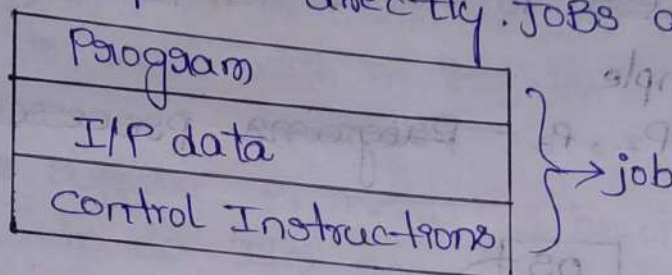 directly. JOBS
Program
I/P data
Control Instructions.
→ job